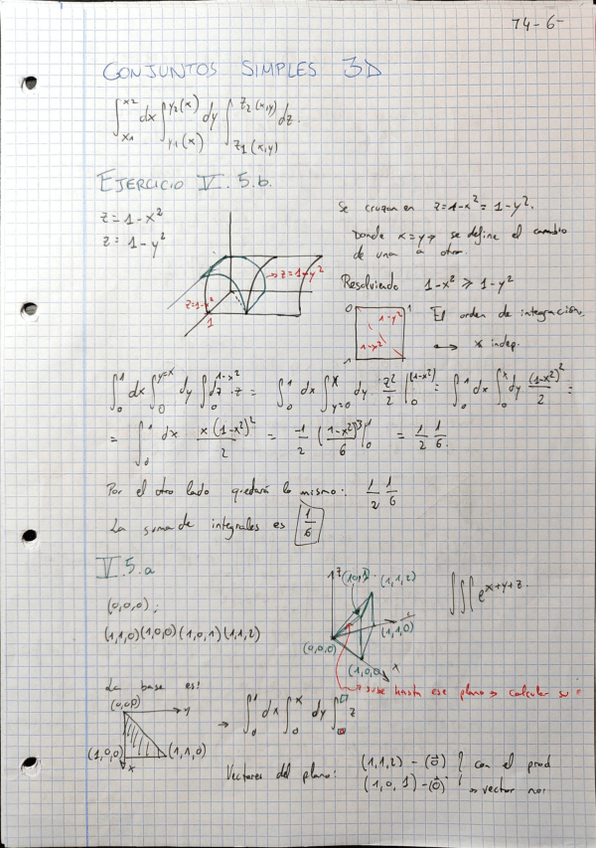 14-6-
CONJUNTOS SIMPLES 3D
∫_{x1}^{x2} dx ∫_{y1(x)}^{y2(x)} dy ∫_{z1(x,y)}^{z2(x,y)} dz.
EJERCICIO V.5.b.
z = 1-x²
z = 1-y²
z=1-y²
z=1-x²
1
Se cruzan en z=1-x² = 1-y².
Donde x=y → se define el cambio
de una a otra.
Resolviendo 1-x² ≥ 1-y²
0 1
1-y²
1-x²
1
El orden de integración.
x indep.
∫_0^1 dx ∫_0^{y=x} dy ∫_0^{1-x²} dz · z = ∫_0^1 dx ∫_{y=0}^x dy z²/2 |_0^{(1-x²)} = ∫_0^1 dx ∫_0^x dy (1-x²)²/2 =
= ∫_0^1 dx x(1-x²)²/2 = -1/2 (1-x²)³/6 |_0^1 = 1/2 1/6.
Por el otro lado quedará lo mismo: 1/2 1/6
La suma de integrales es 1/6
V.5.a
(0,0,0);
(1,1,0)(1,0,0)(1,0,1)(1,1,2)
z
(1,0,1)
(1,1,2)
(1,1,0)
(0,0,0)
(1,0,0)
x
∫∫∫ e^{x+y+z}.
sube hasta ese plano → calcular su e
La base es:
(0,0,0)
y
(1,0,0) (1,1,0)
x
→ ∫_0^1 dx ∫_0^x dy ∫_□^□ z
Vectores del plano: (1,1,2) - (0) } con el prod
(1,0,1) - (0) vector no